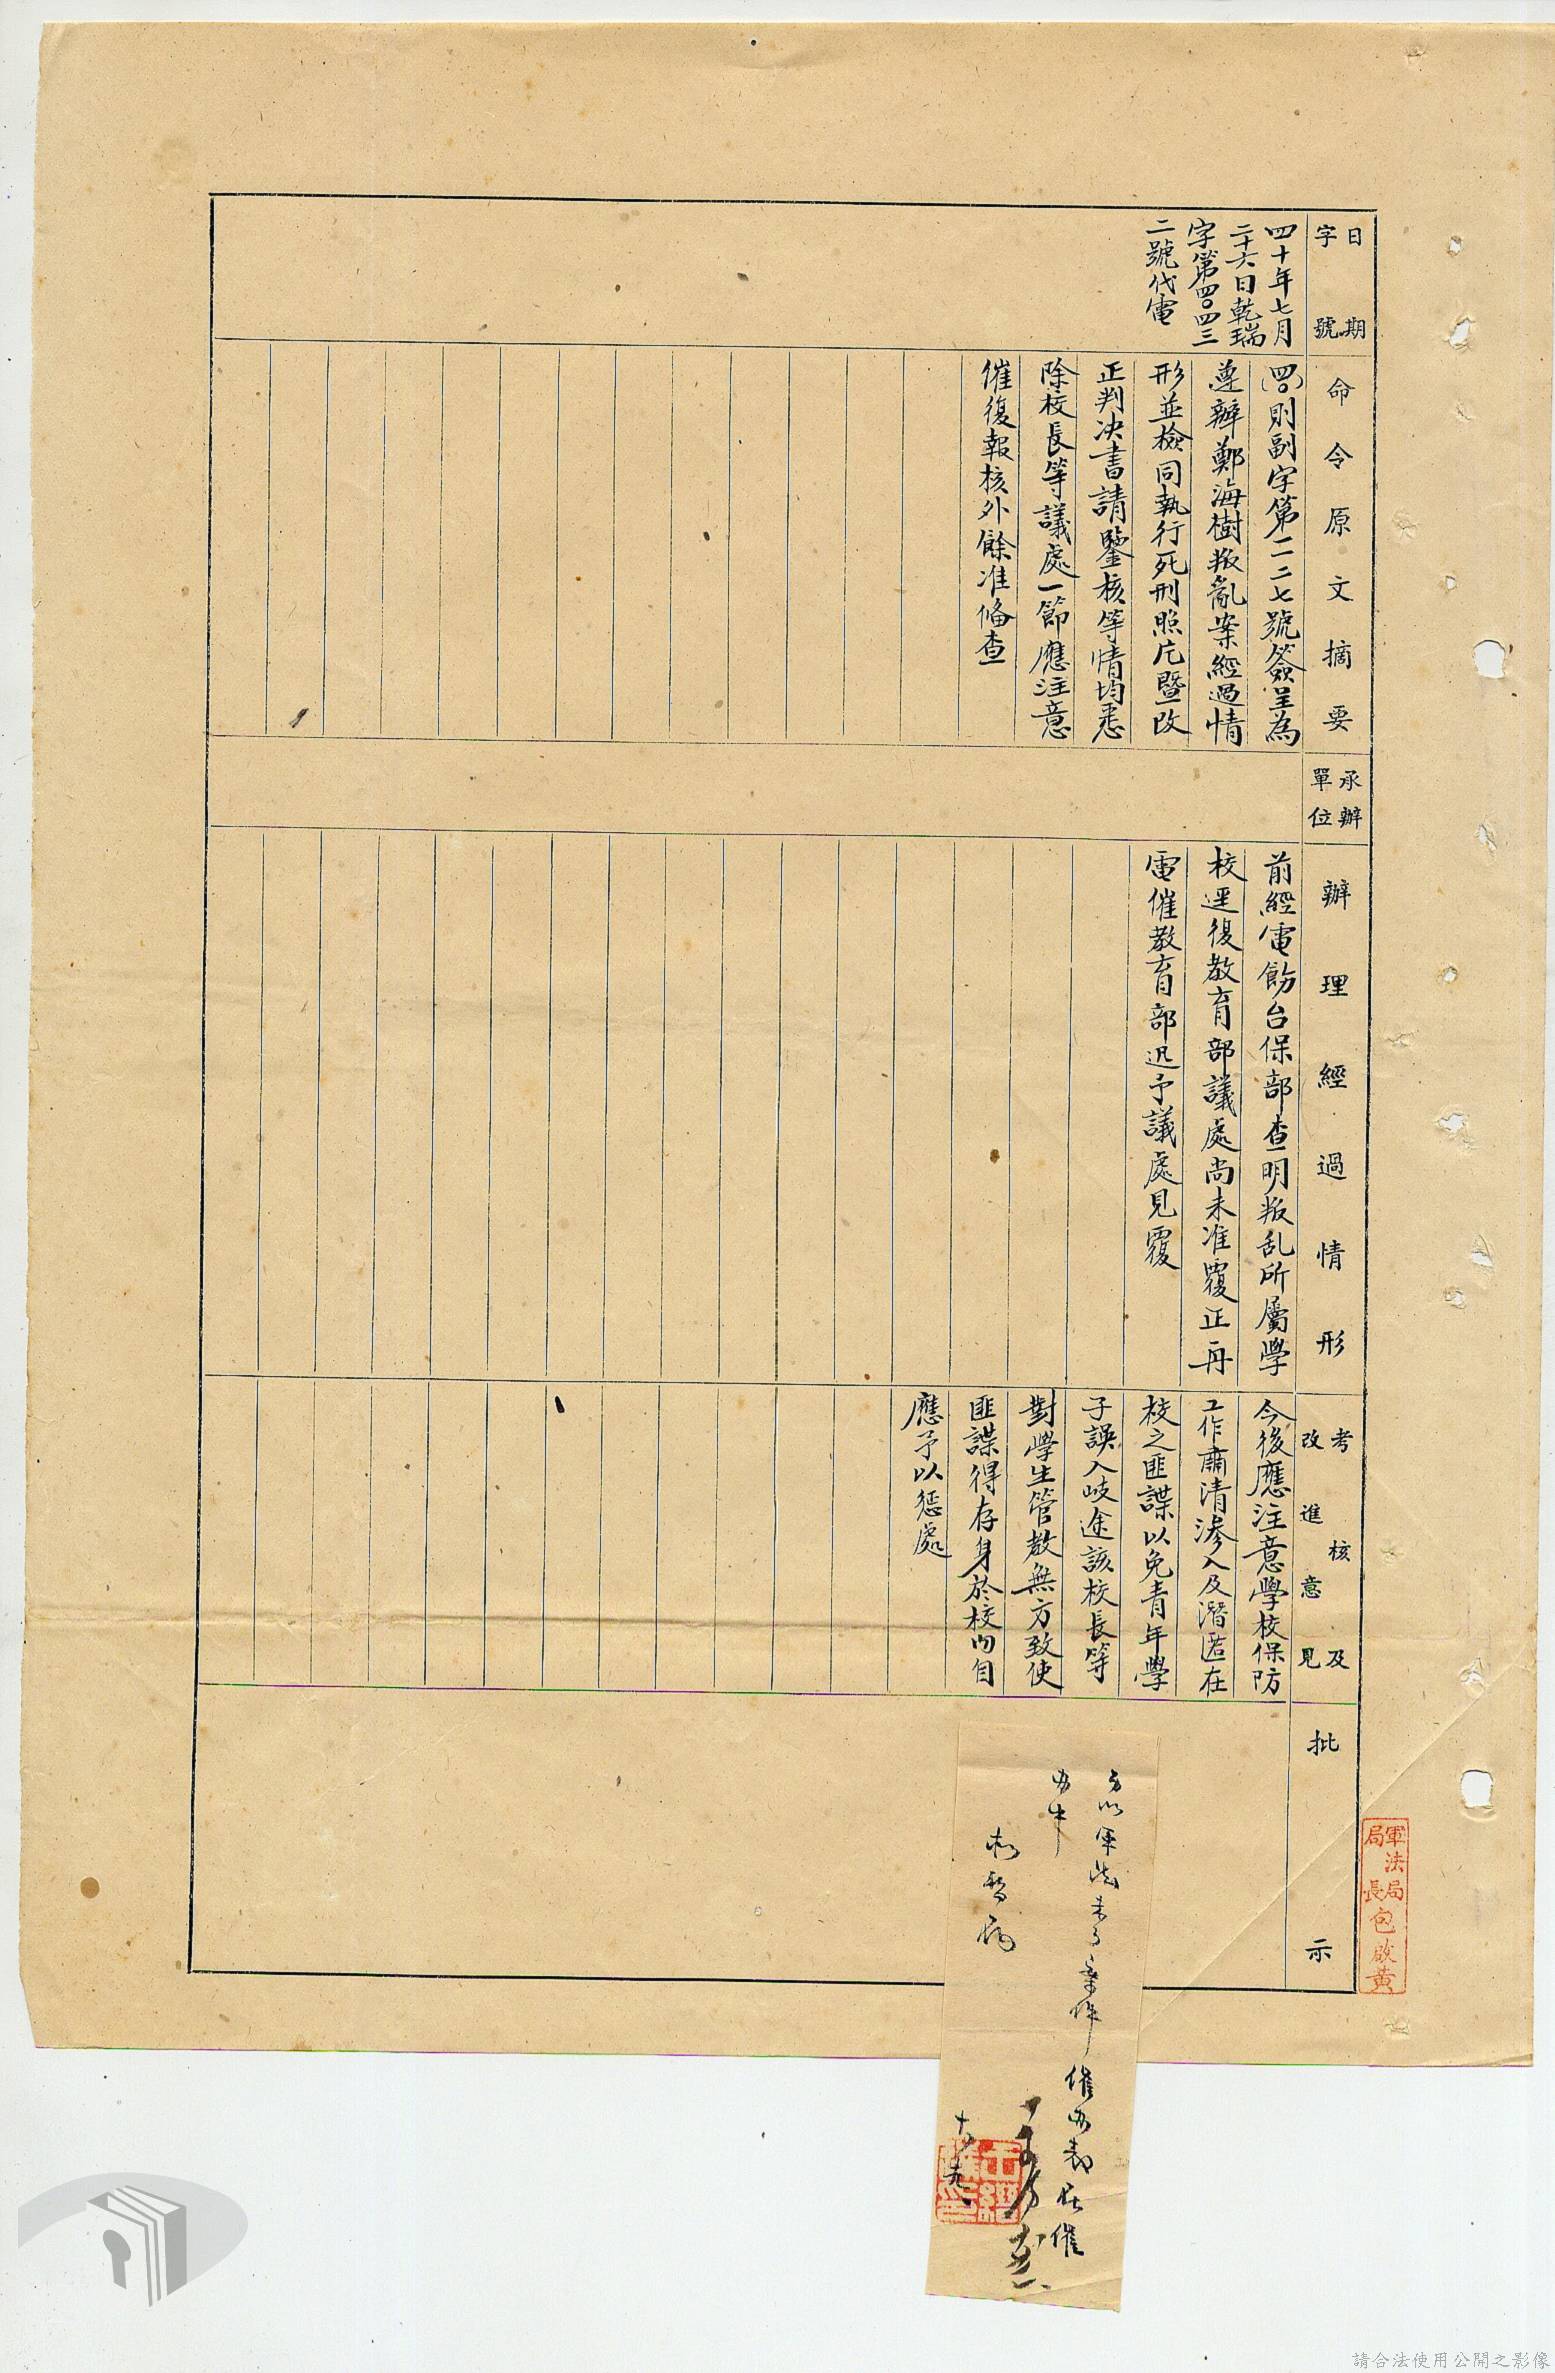 日期
字號
四十年七月
二十六日乾瑞
字第四〇四三
二號代電
命令原文摘要
(四〇)則副字第一二七號簽呈為
遵辦鄭海樹叛亂案經過情
形並檢同執行死刑照片暨改
正判決書請鑒核等情均悉
除校長等議處一節應注意
催復報核外餘准備查
承辦
單位
辦理經過情形
前經電飭台保部查明叛乱所屬學
校逕復教育部議處尚未准覆正再
電催教育部迅予議處見覆
考核及
改進意見
今後應注意學校保防
工作肅清滲入及潛匿在
校之匪諜以免青年學
子誤入歧途該校長等
對學生管教無方致使
匪諜得存身於校內自
應予以懲處
批示
軍法局
局長包啟黃
軍法未了案件催办
办中
請合法使用公開之影像